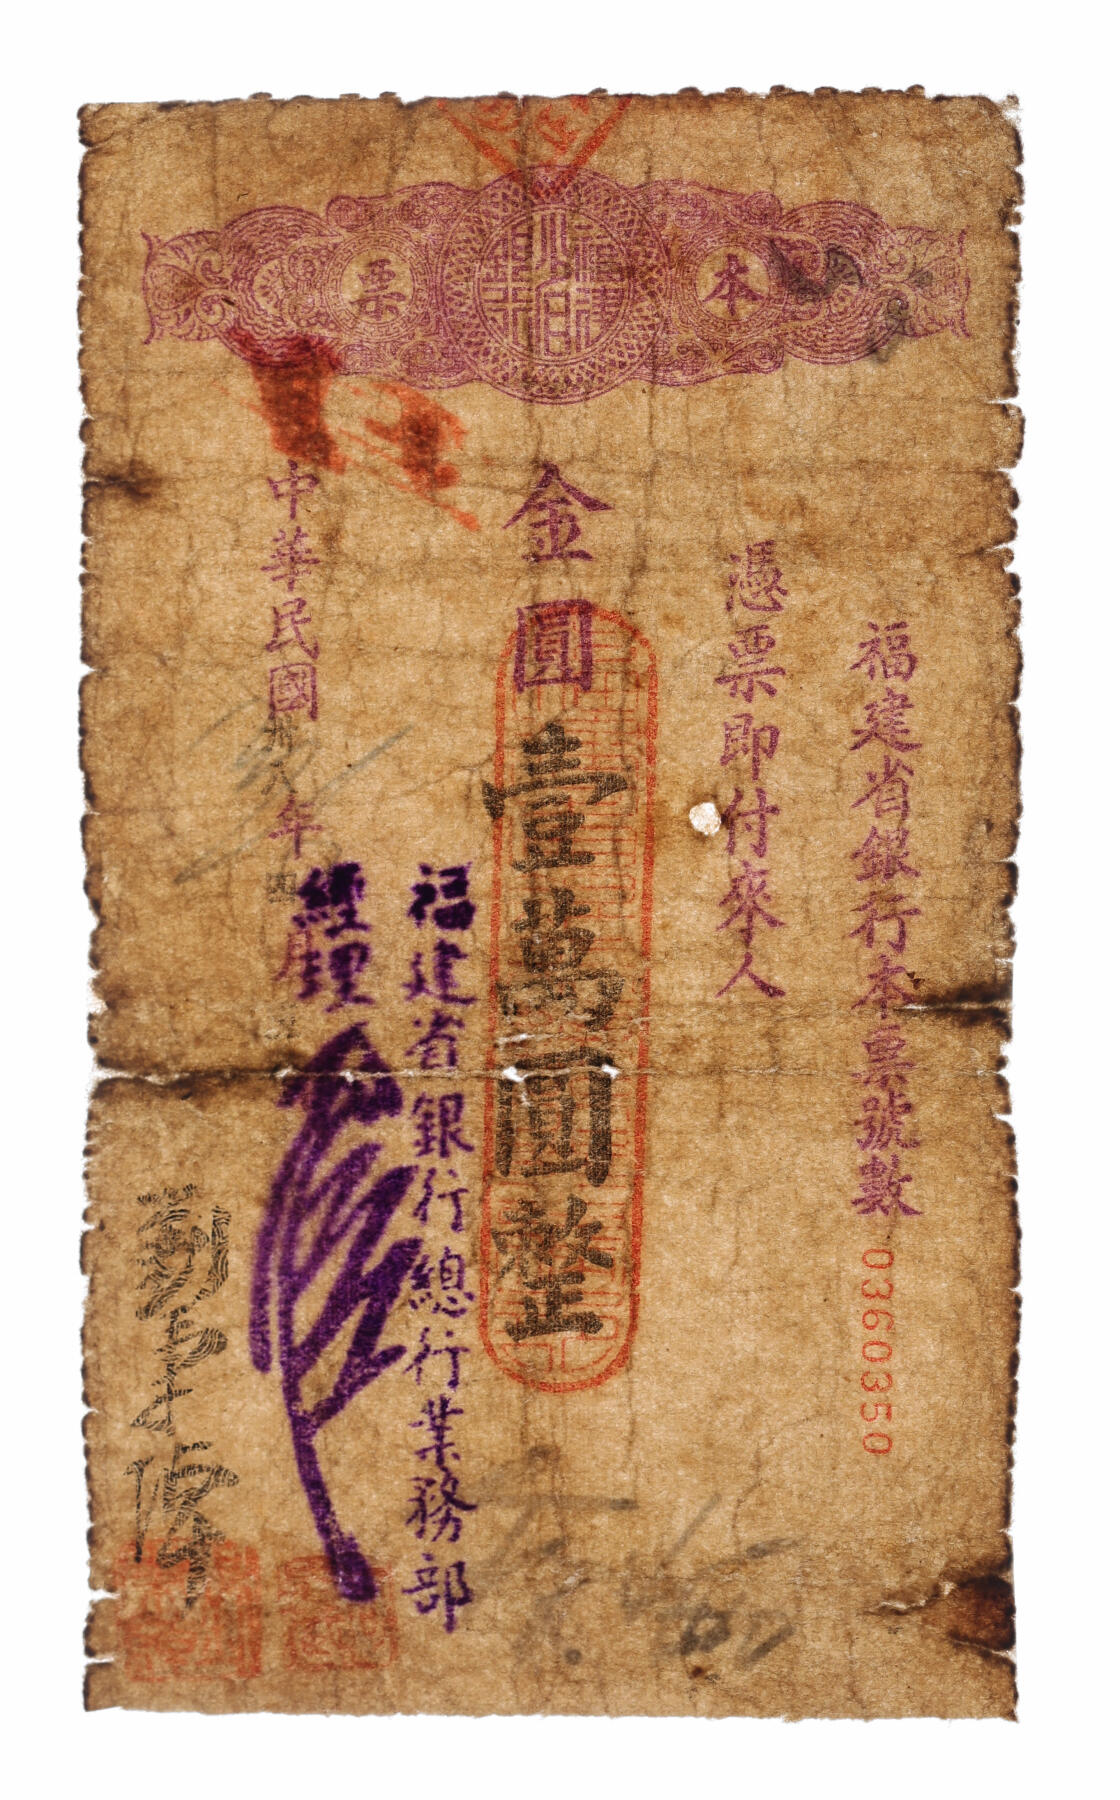 本票
福建省銀行
福建省銀行本票號數 0360350
憑票即付來人
金圓壹萬圓整
福建省銀行總行業務部
經理
中華民國卅八年四月